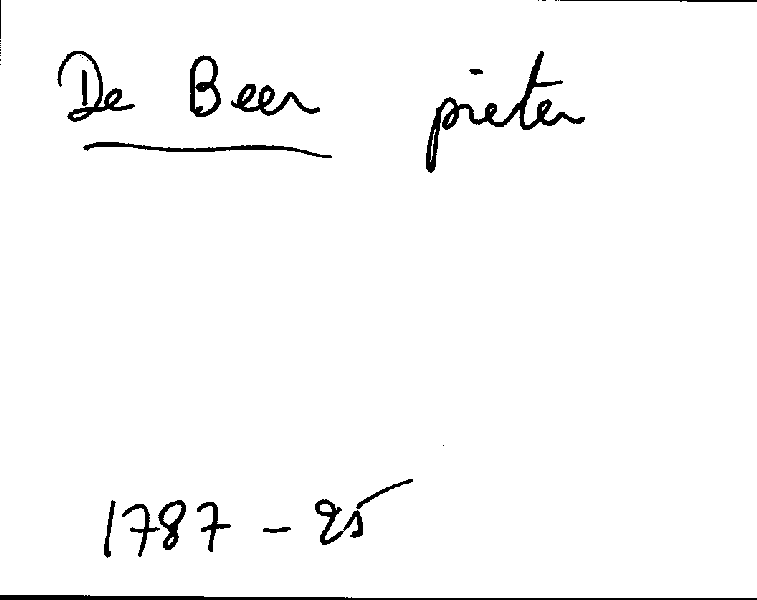 De Beer pieter
1787 - 25